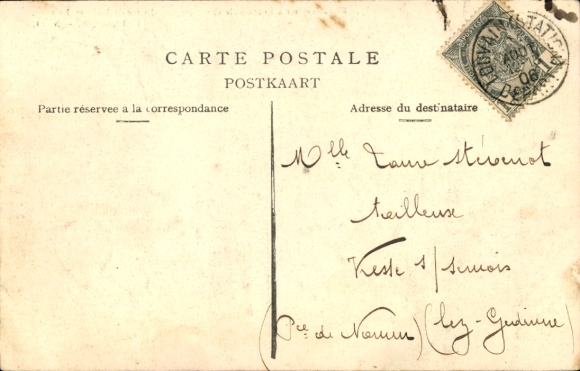 CARTE POSTALE
POSTKAART
Partie réservée à la correspondance
Adresse du destinataire
LOUVAIN (STATION)
AOUT
06
Mlle Laure Stévenot
tailleuse
Vresse s/ semois
(Pce de Namur) (lez-Gedinne)